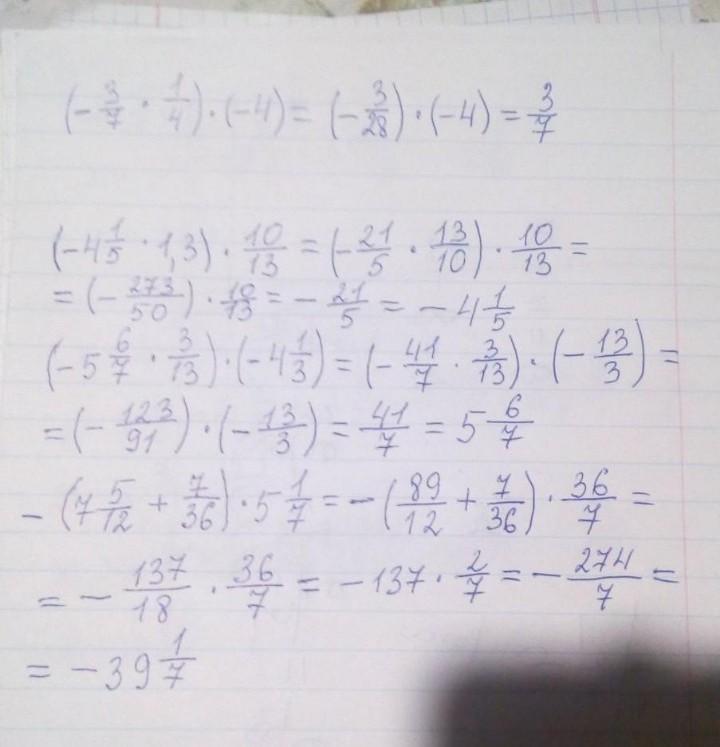 (-3/7 · 1/4) · (-4) = (-3/28) · (-4) = 3/7
(-4 1/5 · 1,3) · 10/13 = (-21/5 · 13/10) · 10/13 =
= (-273/50) · 10/13 = -21/5 = -4 1/5
(-5 6/7 · 3/13) · (-4 1/3) = (-41/7 · 3/13) · (-13/3) =
= (-123/91) · (-13/3) = 41/7 = 5 6/7
-(7 5/12 + 7/36) · 5 1/7 = -(89/12 + 7/36) · 36/7 =
= -137/18 · 36/7 = -137 · 2/7 = -274/7 =
= -39 1/7